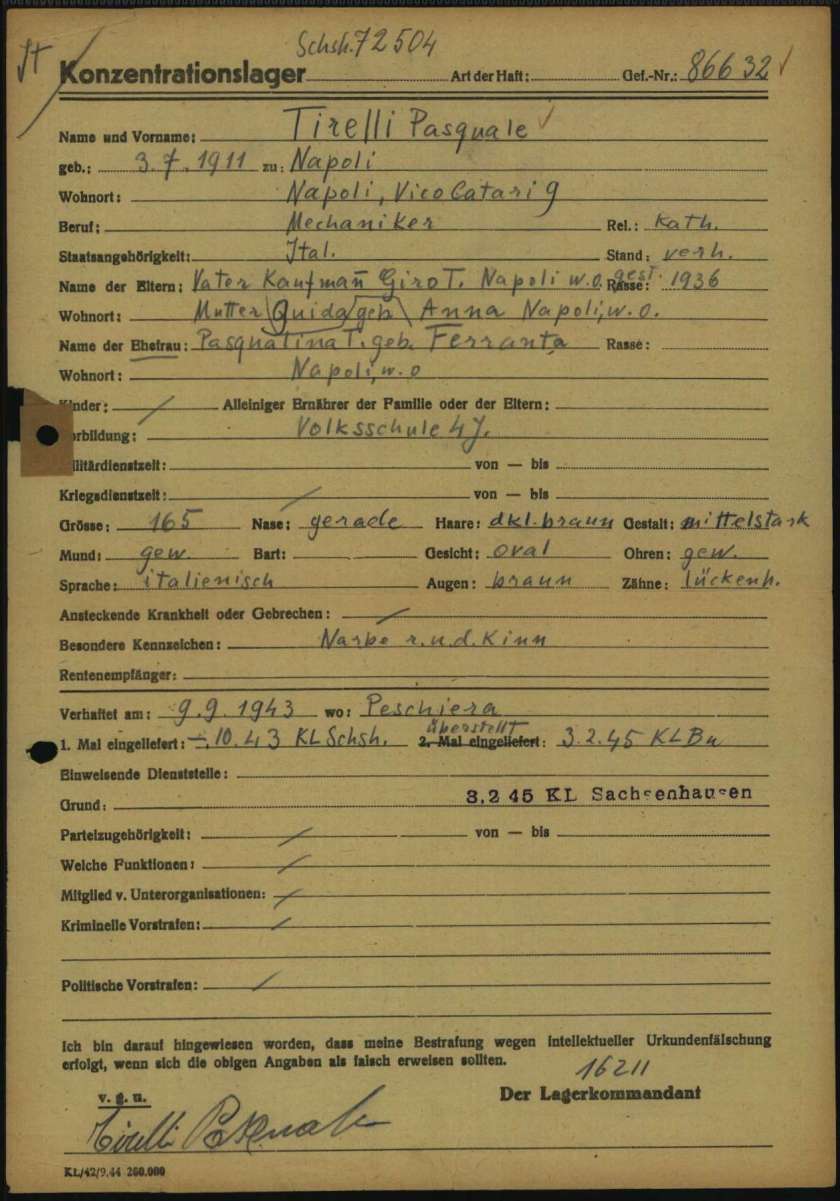 Schsh. 72504
It
Konzentrationslager Art der Haft: Gef.-Nr.: 86632
Name und Vorname: Tirelli Pasquale
geb.: 3.7.1911 zu: Napoli
Wohnort: Napoli, Vico Catari 9
Beruf: Mechaniker Rel.: kath.
Staatsangehörigkeit: Ital. Stand: verh.
Name der Eltern: Vater Kaufmañ Giro T. Napoli w.o. gest. Rasse: 1936
Wohnort: Mutter Quida geb. Anna Napoli, w.o.
Name der Ehefrau: Pasqualina T. geb. Ferranta Rasse:
Wohnort: Napoli, w.o
Kinder: / Alleiniger Ernährer der Familie oder der Eltern:
orbildung: Volksschule 4 J.
ilitärdienstzeit: von — bis
Kriegsdienstzeit: / von — bis
Grösse: 165 Nase: gerade Haare: dkl.braun Gestalt: mittelstark
Mund: gew. Bart: Gesicht: oval Ohren: gew.
Sprache: italienisch Augen: braun Zähne: lückenh.
Ansteckende Krankheit oder Gebrechen: /
Besondere Kennzeichen: Narbe r.u.d. Kinn
Rentenempfänger:
Verhaftet am: 9.9.1943 wo: Peschiera
1. Mal eingeliefert: –.10.43 KL Schsh. überstellt 2. Mal eingeliefert: 3.2.45 KL Bu
Einweisende Dienststelle:
Grund: 3.2 45 KL Sachsenhausen
Parteizugehörigkeit: / von — bis
Welche Funktionen: /
Mitglied v. Unterorganisationen: /
Kriminelle Vorstrafen: /
Politische Vorstrafen: /
Ich bin darauf hingewiesen worden, dass meine Bestrafung wegen intellektueller Urkundenfälschung
erfolgt, wenn sich die obigen Angaben als falsch erweisen sollten.
16211
v. g. u. Der Lagerkommandant
Tirelli Pasquale
KL/42/9.44 260.000